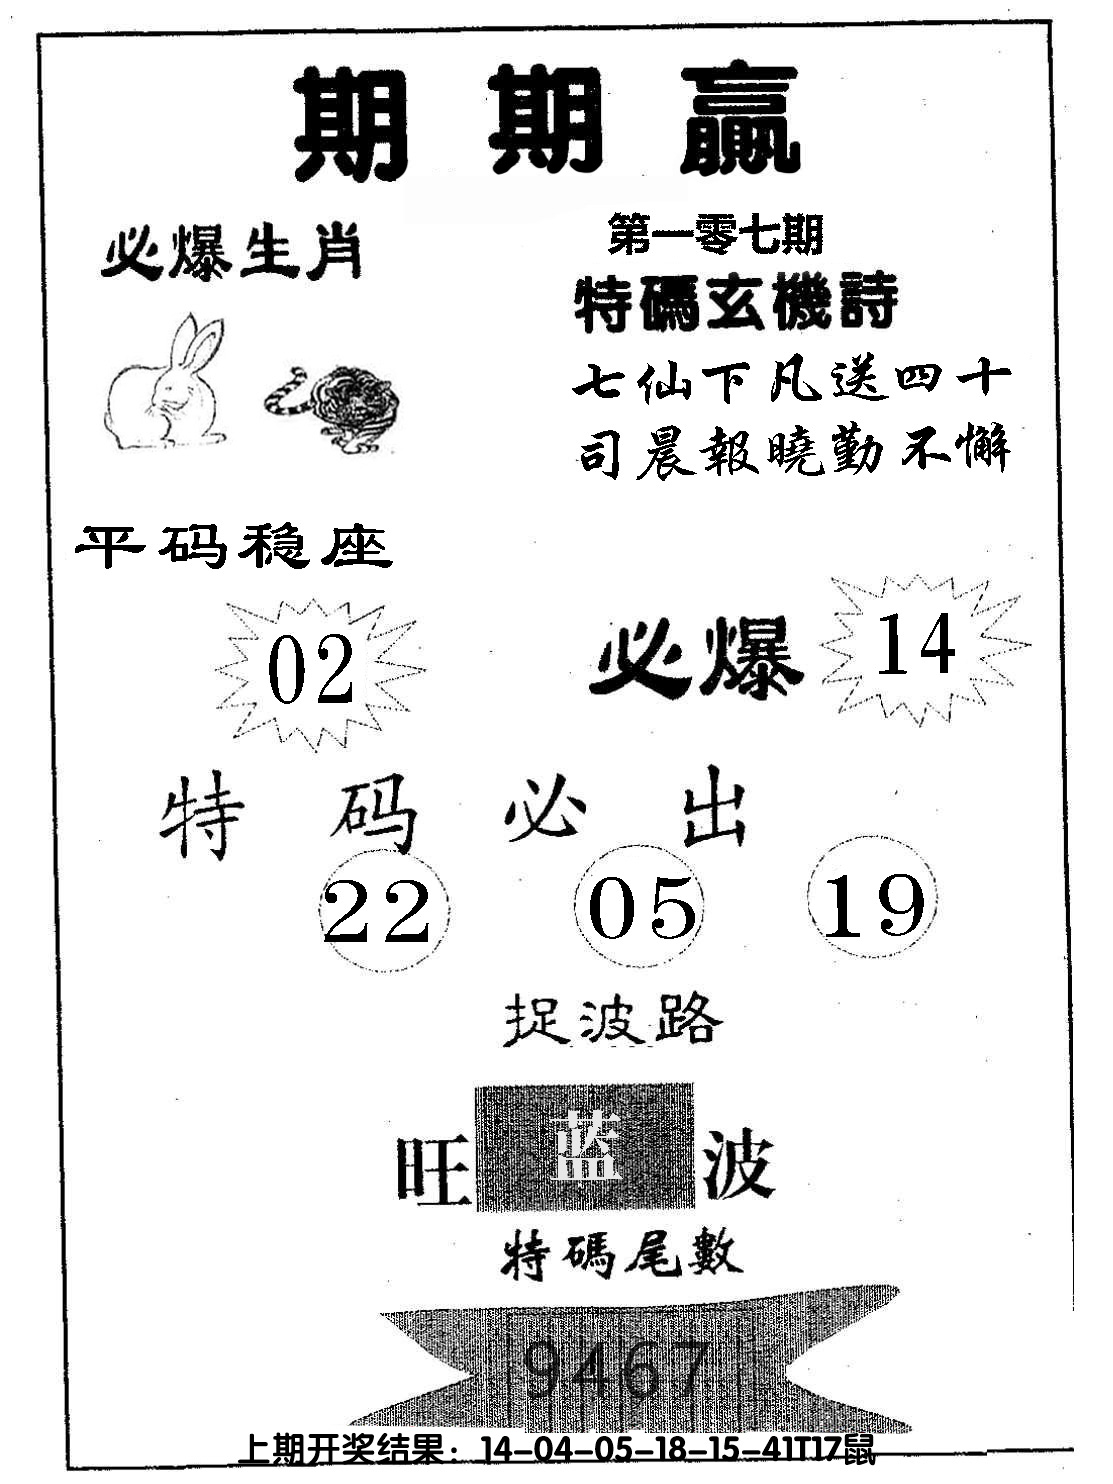 期期赢
必爆生肖
第一零七期
特碼玄機詩
七仙下凡送四十
司晨報曉勤不懈
平码稳座
02
必爆 14
特码必出
22 05 19
捉波路
旺 蓝 波
特碼尾數
9467
上期开奖结果：14-04-05-18-15-41T17鼠